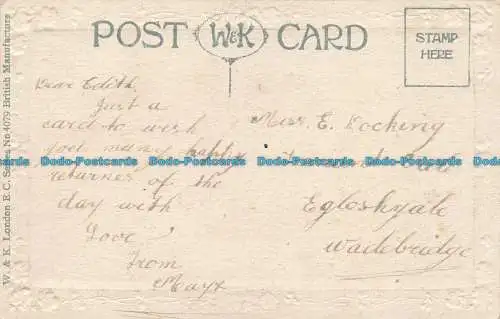 POST W&K CARD
STAMP
HERE
W. & K. London E.C. Series No.4079 British Manufacture
Dear Edith,
Just a
card to wish
you many happy
returns of the
day with
Love
From
May x
Miss. E. Hocking
Egloshayle
Wadebridge
Dodo-Postcards Dodo-Postcards Dodo-Postcards Dodo-Postcards Dodo-Postcards